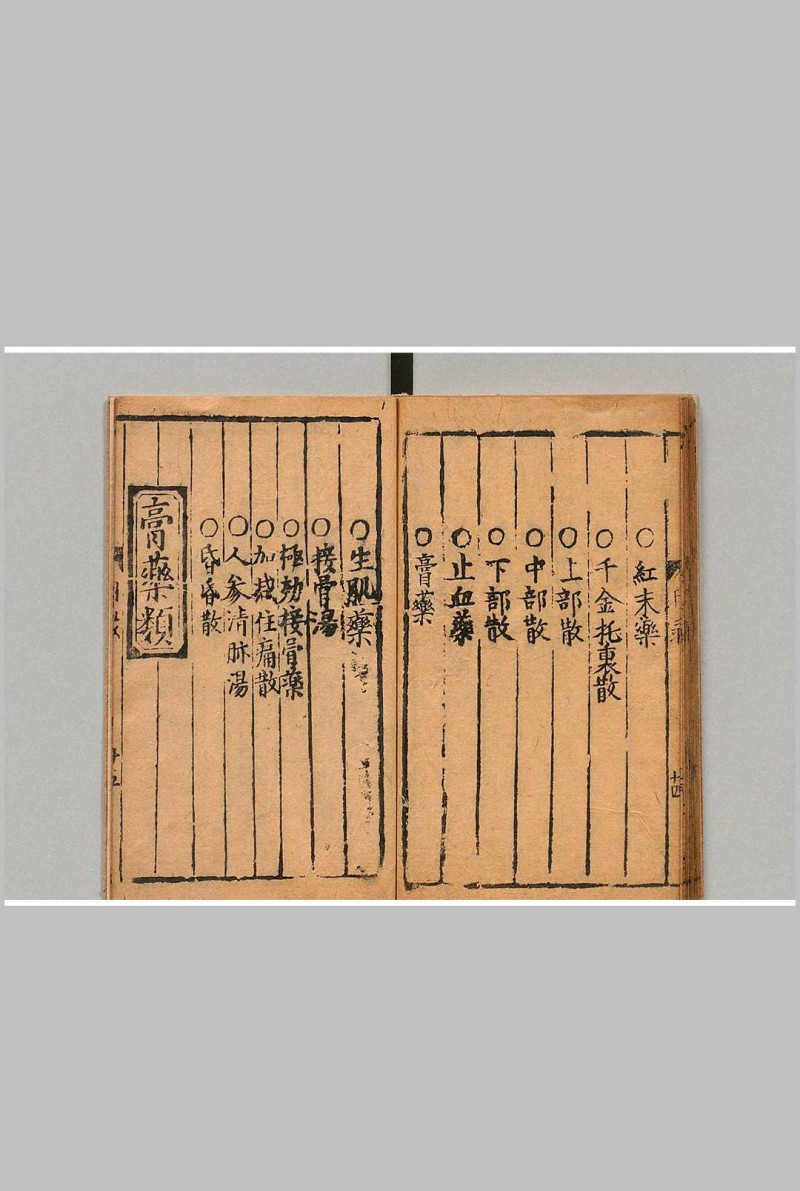 ○紅末藥
○千金托裏散
○上部散
○中部散
○下部散
○止血藥
○膏藥
十四
○生肌藥
○接骨湯
○極効接骨藥
○加減住痛散
○人參清脉湯
○昏昏散
膏藥類
十五